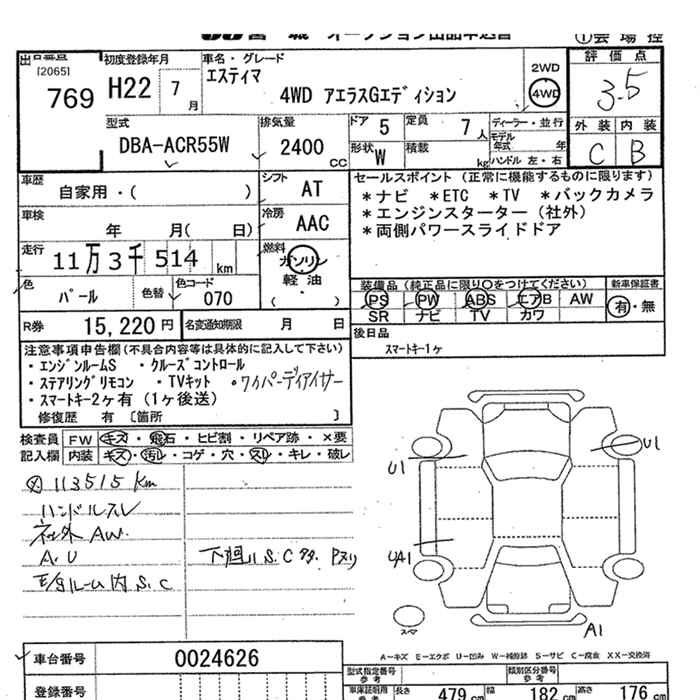 宮城 オークション出品申込書 ①会場控
出品番号 初度登録年月 車名・グレード 評価点
[2065] エスティマ 2WD
769 H22 7月 4WD アエラスGエディション 4WD 3.5
型式 排気量 ドア 5 定員 7人 ディーラー・並行 外装 内装
DBA-ACR55W 2400cc 形状 W 積載 kg モデル年式 年 C B
ハンドル 左・右
車歴 シフト セールスポイント (正常に機能するものに限ります)
自家用・( ) AT *ナビ *ETC *TV *バックカメラ
車検 冷房 *エンジンスターター(社外)
年 月( 日) AAC *両側パワースライドドア
走行 燃料
11万3千514km ガソリン
色 色替 色コード 軽油 装備品(純正品に限り○をつけてください) 新車保証書
パール 070 ( ) PS PW ABS エアB AW 有・無
SR ナビ TV カワ
R券 15,220円 名変通知期限 月 日 後日品
スマートキー1ヶ
注意事項申告欄(不具合内容等は具体的に記入して下さい)
・エンジンルームS ・クルーズコントロール
・ステアリングリモコン ・TVキット ・ワイパーディアイサー
・スマートキー2ヶ有(1ヶ後送)
修復歴 有 〔箇所 〕
検査員 FW キズ・飛石・ヒビ割・リペア跡・×要
記入欄 内装 キズ・汚レ・コゲ・穴・スレ・キレ・破レ
113515km
ハンドルスレ
社外AW.
A.U 下廻りS.C
ルーム内S.C
U1
U1
UA1
スペア
A1
A−キズ E−エクボ U−凹み W−補修跡 S−サビ C−腐食 XX−交換済
車台番号 0024626
型式指定番号 参考 類別区分番号 参考
登録番号 車庫証明用 参考 長さ 479cm 幅 182cm 高さ 176cm